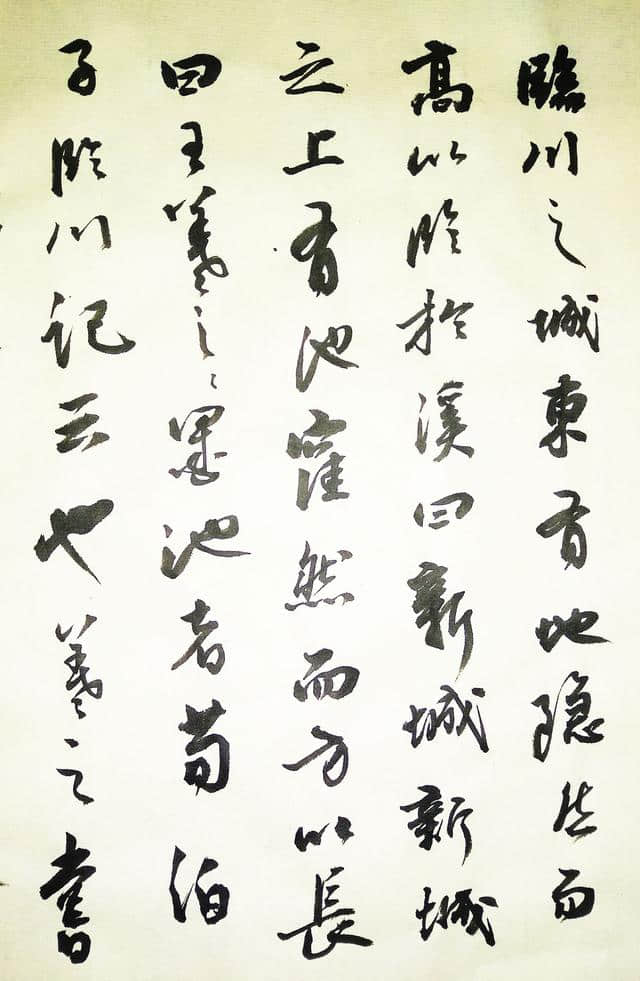 臨川之城東有地隐然而
高以临於溪曰新城新城
之上有池窪然而方以長
曰王羲之之墨池者荀伯
子临川记云也羲之嘗